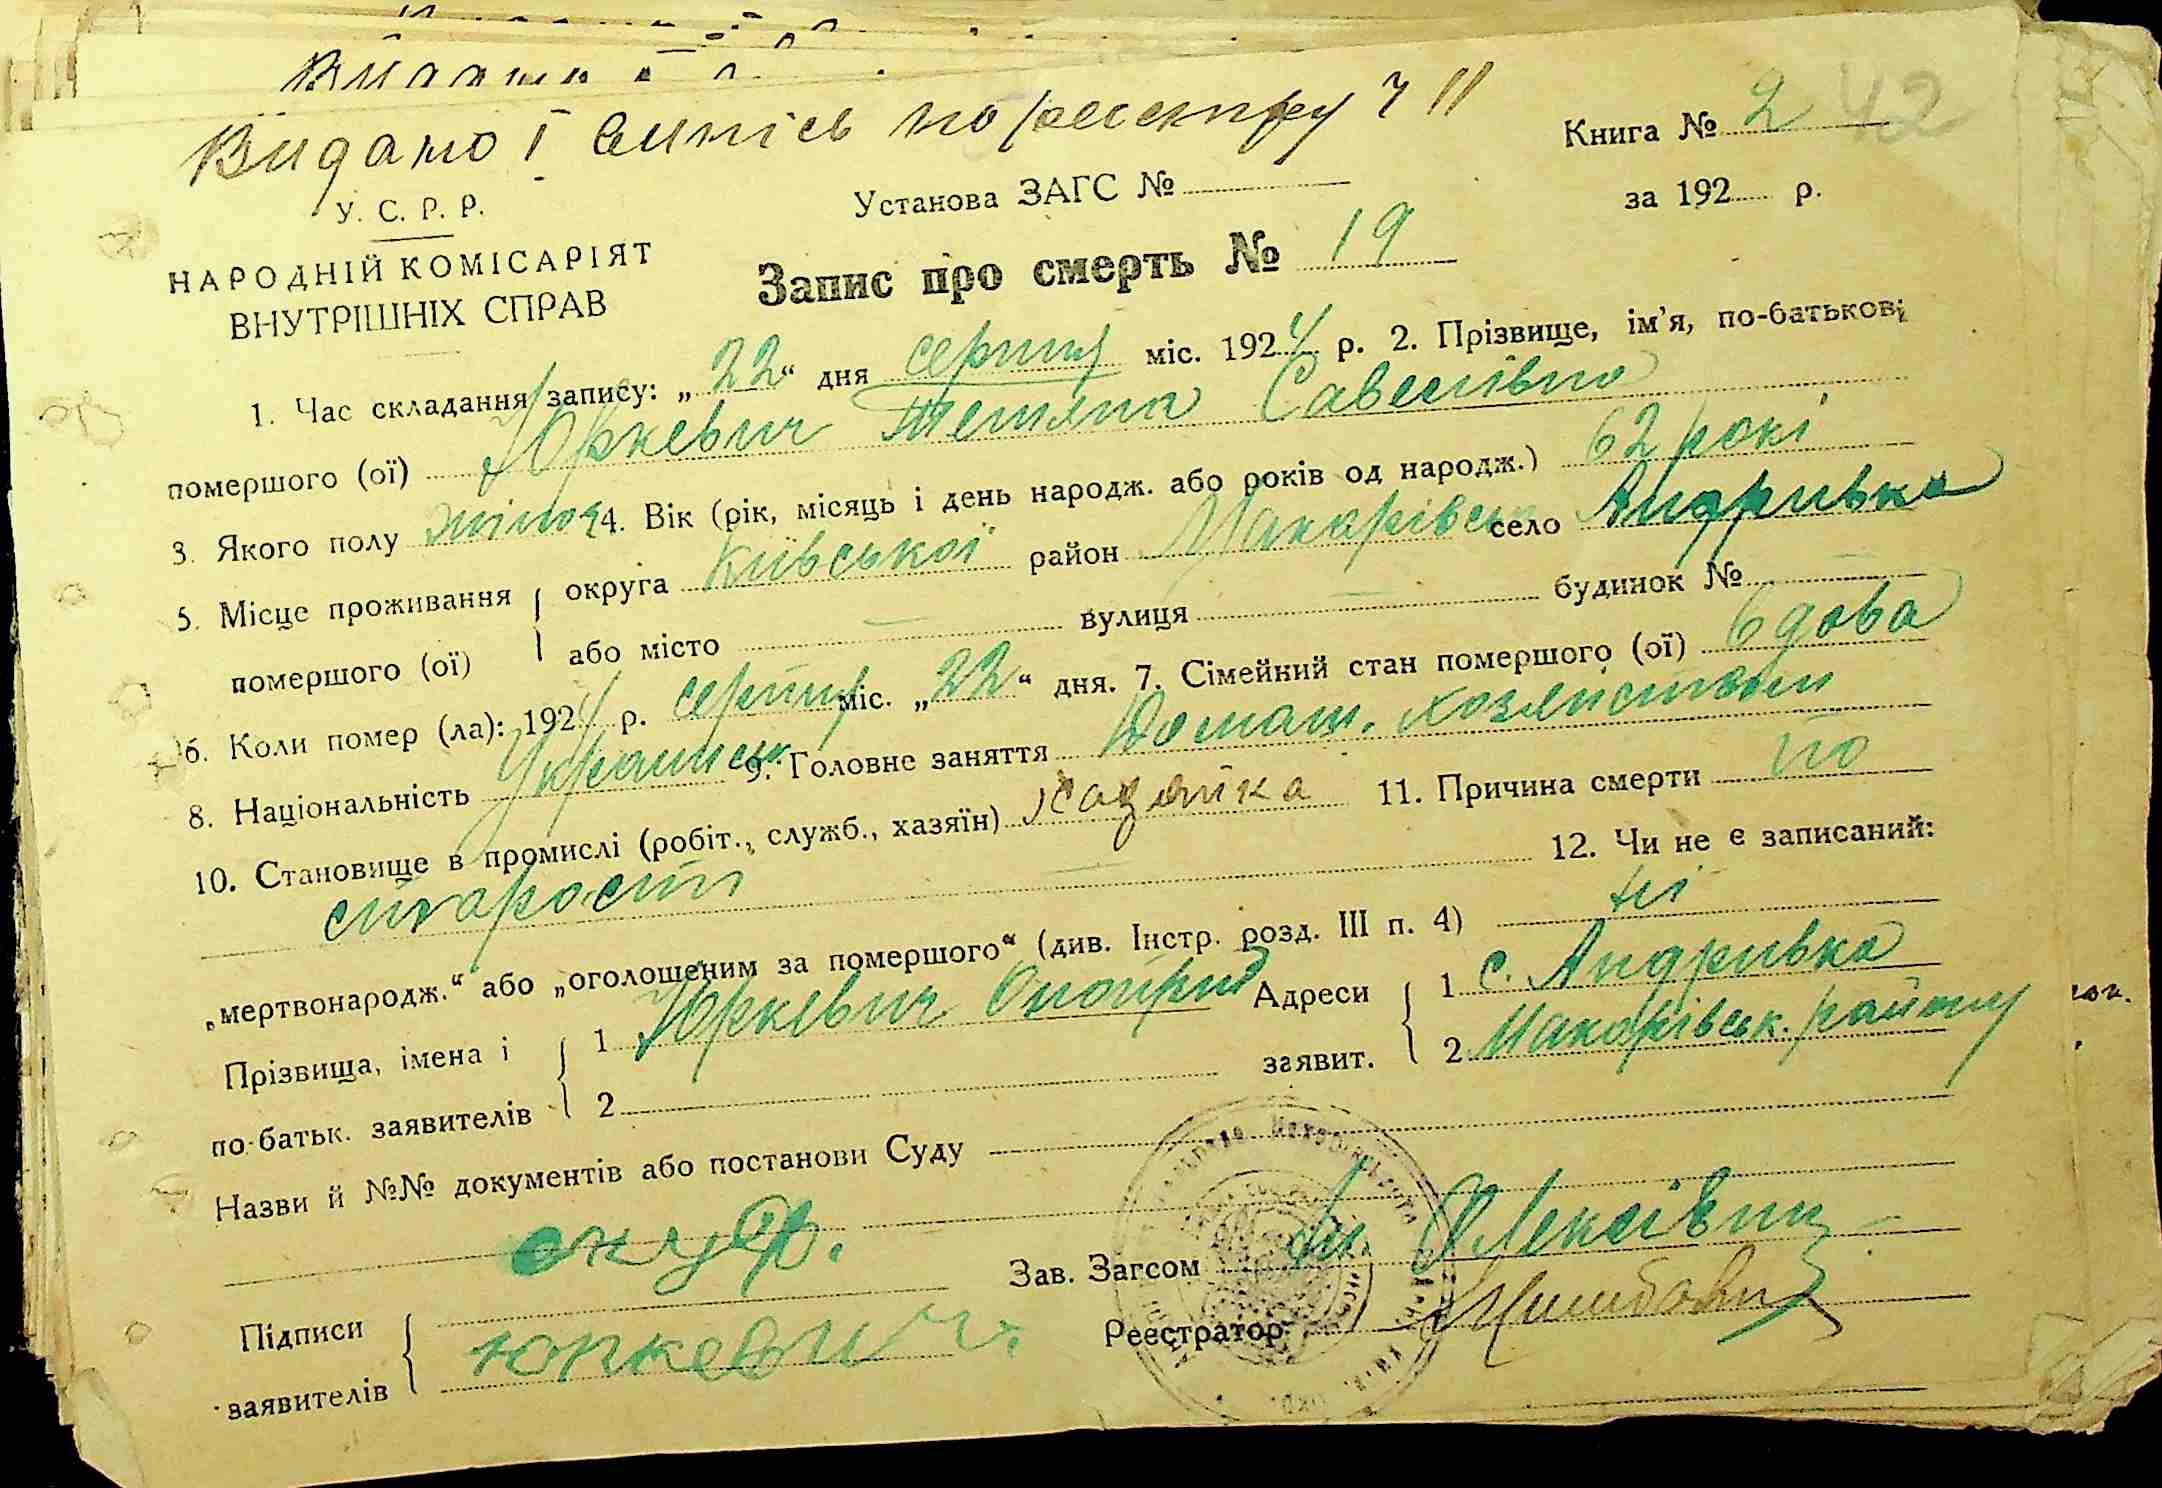 Видано 1 випись по реєстру Ч 11
Книга № 2 42
У. С. Р. Р.
Установа ЗАГС №
за 192 р.
НАРОДНІЙ КОМІСАРІЯТ
ВНУТРІШНІХ СПРАВ
Запис про смерть № 19
1. Час складання запису: „22“ дня серпня міс. 1924 р. 2. Прізвище, ім'я, по-батькові
помершого (ої) Юркевич Тетяна Савеливна
3. Якого полу жіноч 4. Вік (рік, місяць і день народж. або років од народж.) 62 рокі
5. Місце проживання округа Київської район Макарівськ село Андривка
помершого (ої) або місто — вулиця — будинок № —
6. Коли помер (ла): 1924 р. серпня міс. „22“ дня. 7. Сімейний стан помершого (ої) вдова
8. Національність Украинськ 9. Головне заняття Домаш. хозяиством
10. Становище в промислі (робіт., служб., хазяїн) хазяйка 11. Причина смерти по
старости 12. Чи не є записаний:
„мертвонародж.“ або „оголошеним за помершого“ (див. Інстр. розд. III п. 4) ні
Прізвища, імена і 1 Юркевич Оноприй Адреси 1 с. Андривка
по-батьк. заявителів 2 заявит. 2 Макарівськ. району
Назви й №№ документів або постанови Суду
Зав. Загсом
Підписи
Юркевич Реєстратор
заявителів